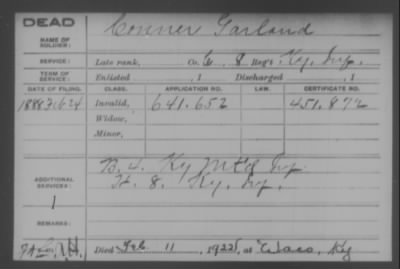 DEAD
NAME OF SOLDIER:
Conner Garland
SERVICE:
Late rank, Co. G 8 Reg't Ky. Inf.
TERM OF SERVICE:
Enlisted , 1 Discharged , 1
DATE OF FILING. CLASS. APPLICATION NO. LAW. CERTIFICATE NO.
1888 Feb 24 Invalid, 641.652 451.872
Widow,
Minor,
ADDITIONAL SERVICES:
B. 4. Ky Mtd Inf.
H. 8. Ky. Inf.
1
REMARKS:
Died Feb. 11, 1922, at Waco, Ky